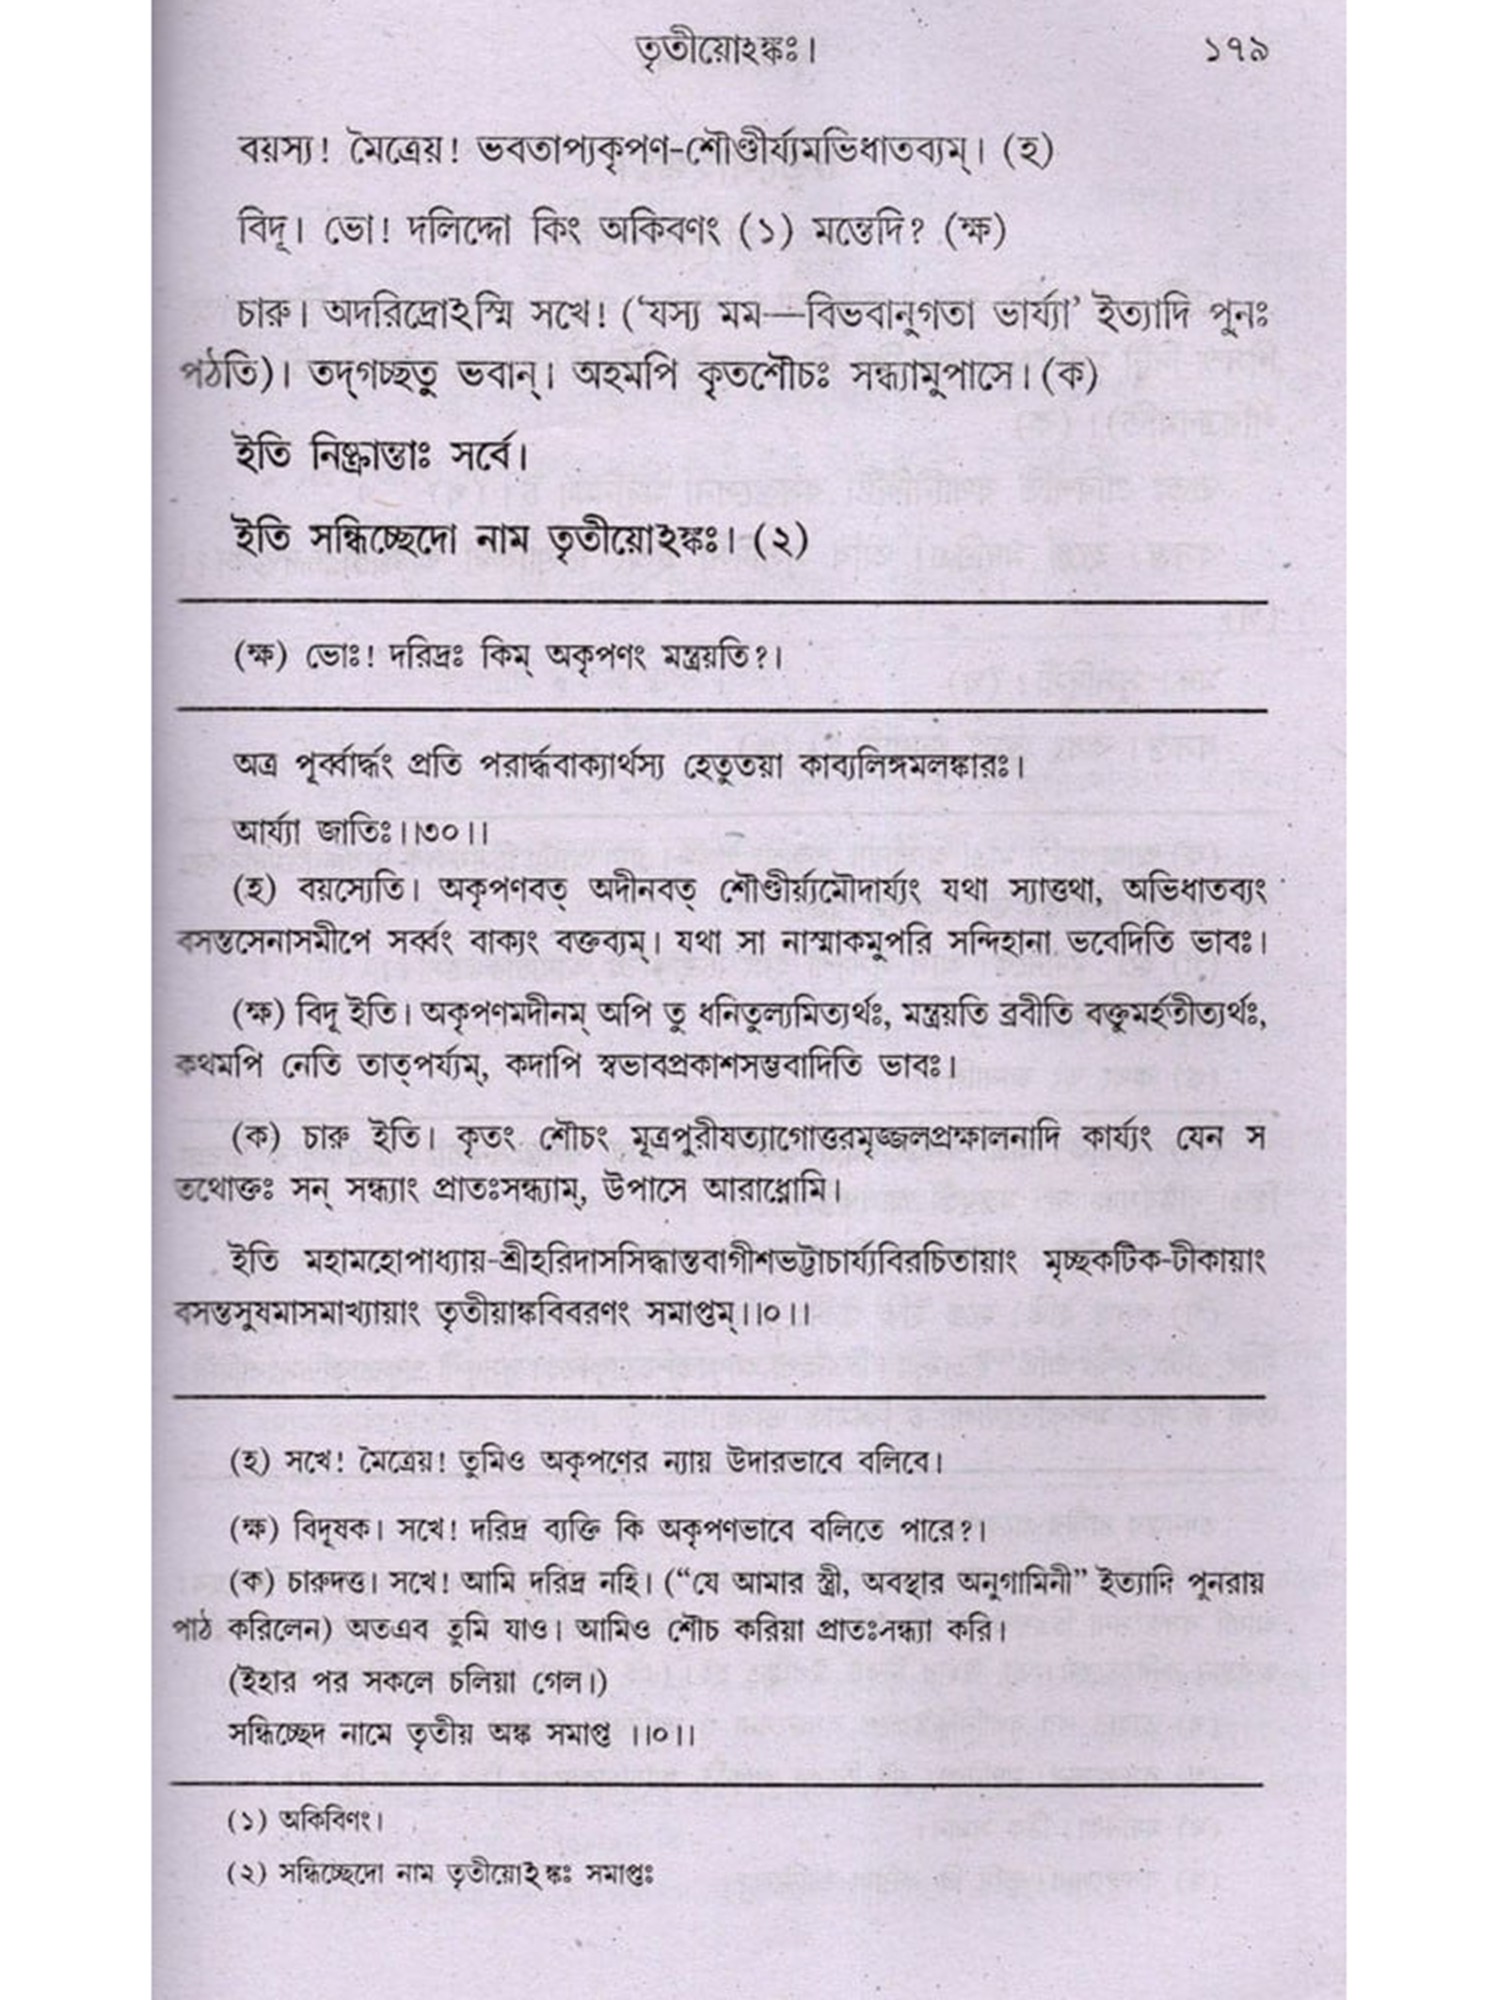 তৃতীয়োঽঙ্কঃ। ১৭৯
বয়স্য! মৈত্রেয়! ভবতাপ্যকৃপণ-শৌণ্ডীর্য্যমভিধাতব্যম্। (হ)
বিদূ। ভো! দলিদ্দো কিং অকিবণং (১) মন্তেদি? (ক্ষ)
চারু। অদরিদ্রোঽস্মি সখে! (‘যস্য মম—বিভবানুগতা ভার্য্যা’ ইত্যাদি পুনঃ
পঠতি)। তদ্গচ্ছতু ভবান্। অহমপি কৃতশৌচঃ সন্ধ্যামুপাসে। (ক)
ইতি নিষ্ক্রান্তাঃ সর্বে।
ইতি সন্ধিচ্ছেদো নাম তৃতীয়োঽঙ্কঃ। (২)
(ক্ষ) ভোঃ! দরিদ্রঃ কিম্ অকৃপণং মন্ত্রয়তি?।
অত্র পূর্ব্বার্দ্ধং প্রতি পরার্দ্ধবাক্যার্থস্য হেতুতয়া কাব্যলিঙ্গমলঙ্কারঃ।
আর্য্যা জাতিঃ।।৩০।।
(হ) বয়স্যেতি। অকৃপণবত্ অদীনবত্ শৌণ্ডীর্য্যমৌদার্য্যং যথা স্যাত্তথা, অভিধাতব্যং
বসন্তসেনাসমীপে সর্ব্বং বাক্যং বক্তব্যম্। যথা সা নাস্মাকমুপরি সন্দিহানা ভবেদিতি ভাবঃ।
(ক্ষ) বিদূ ইতি। অকৃপণমদীনম্ অপি তু ধনিতুল্যমিত্যর্থঃ, মন্ত্রয়তি ব্রবীতি বক্তুমর্হতীত্যর্থঃ,
কথমপি নেতি তাত্পর্য্যম্, কদাপি স্বভাবপ্রকাশসম্ভবাদিতি ভাবঃ।
(ক) চারু ইতি। কৃতং শৌচং মূত্রপুরীষত্যাগোত্তরমৃজ্জলপ্রক্ষালনাদি কার্য্যং যেন স
তথোক্তঃ সন্ সন্ধ্যাং প্রাতঃসন্ধ্যাম্, উপাসে আরাধ্নোমি।
ইতি মহামহোপাধ্যায়-শ্রীহরিদাসসিদ্ধান্তবাগীশভট্টাচার্য্যবিরচিতায়াং মৃচ্ছকটিক-টীকায়াং
বসন্তসুষমাসমাখ্যায়াং তৃতীয়াঙ্কবিবরণং সমাপ্তম্।।০।।
(হ) সখে! মৈত্রেয়! তুমিও অকৃপণের ন্যায় উদারভাবে বলিবে।
(ক্ষ) বিদূষক। সখে! দরিদ্র ব্যক্তি কি অকৃপণভাবে বলিতে পারে?।
(ক) চারুদত্ত। সখে! আমি দরিদ্র নহি। (“যে আমার স্ত্রী, অবস্থার অনুগামিনী” ইত্যাদি পুনরায়
পাঠ করিলেন) অতএব তুমি যাও। আমিও শৌচ করিয়া প্রাতঃসন্ধ্যা করি।
(ইহার পর সকলে চলিয়া গেল।)
সন্ধিচ্ছেদ নামে তৃতীয় অঙ্ক সমাপ্ত ।।০।।
(১) অকিবিণং।
(২) সন্ধিচ্ছেদো নাম তৃতীয়োঽঙ্কঃ সমাপ্তঃ